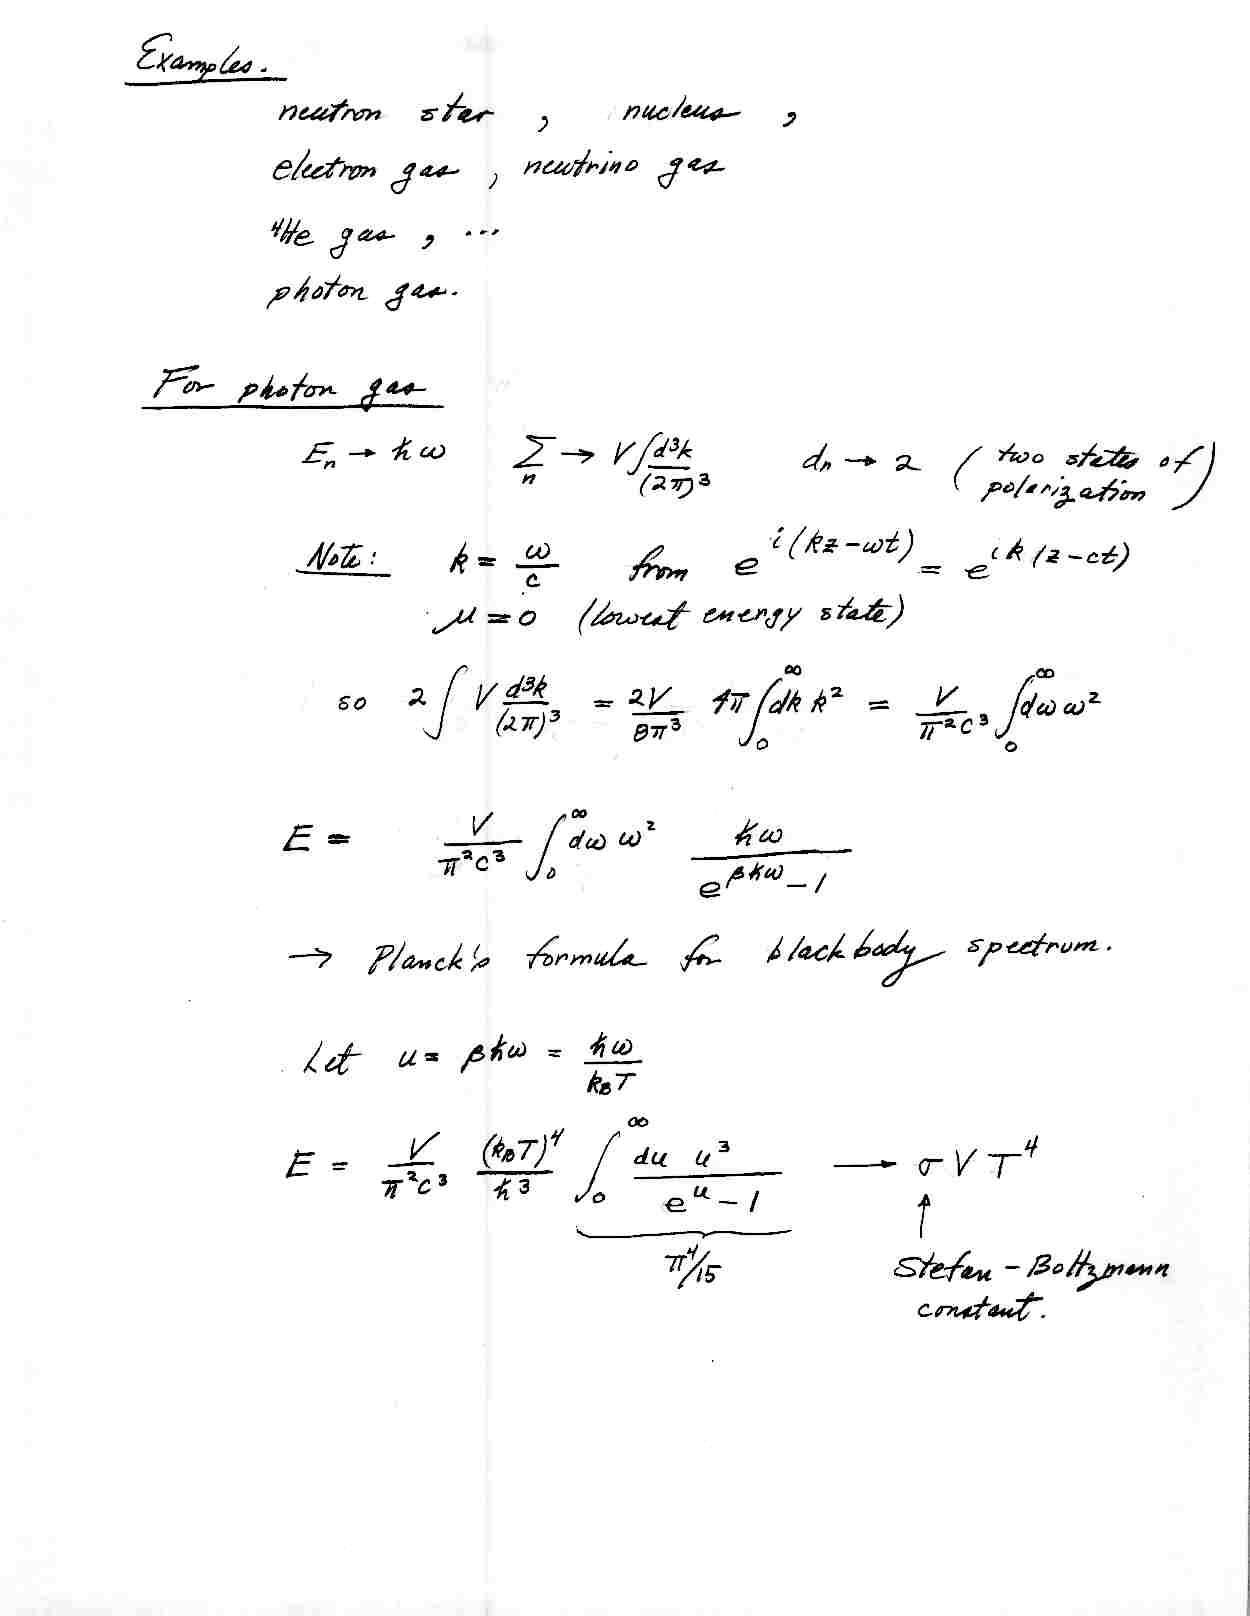 Examples.
neutron star , nucleus ,
electron gas , neutrino gas
⁴He gas , ...
photon gas.
For photon gas
Eₙ → ħω   ∑ₙ → V∫ d³k/(2π)³   dₙ → 2 ( two states of polarization )
Note: k = ω/c from e^{i(kz-ωt)} = e^{ik(z-ct)}
μ = 0 (lowest energy state)
so 2∫ V d³k/(2π)³ = 2V/8π³ 4π∫₀^∞ dk k² = V/π²c³ ∫₀^∞ dω ω²
E = V/π²c³ ∫₀^∞ dω ω² ħω/(e^{βħω} - 1)
→ Planck's formula for blackbody spectrum.
Let u = βħω = ħω/k_BT
E = V/π²c³ (k_BT)⁴/ħ³ ∫₀^∞ du u³/(e^u - 1) → σ V T⁴
↑
π⁴/15 Stefan - Boltzmann
constant.